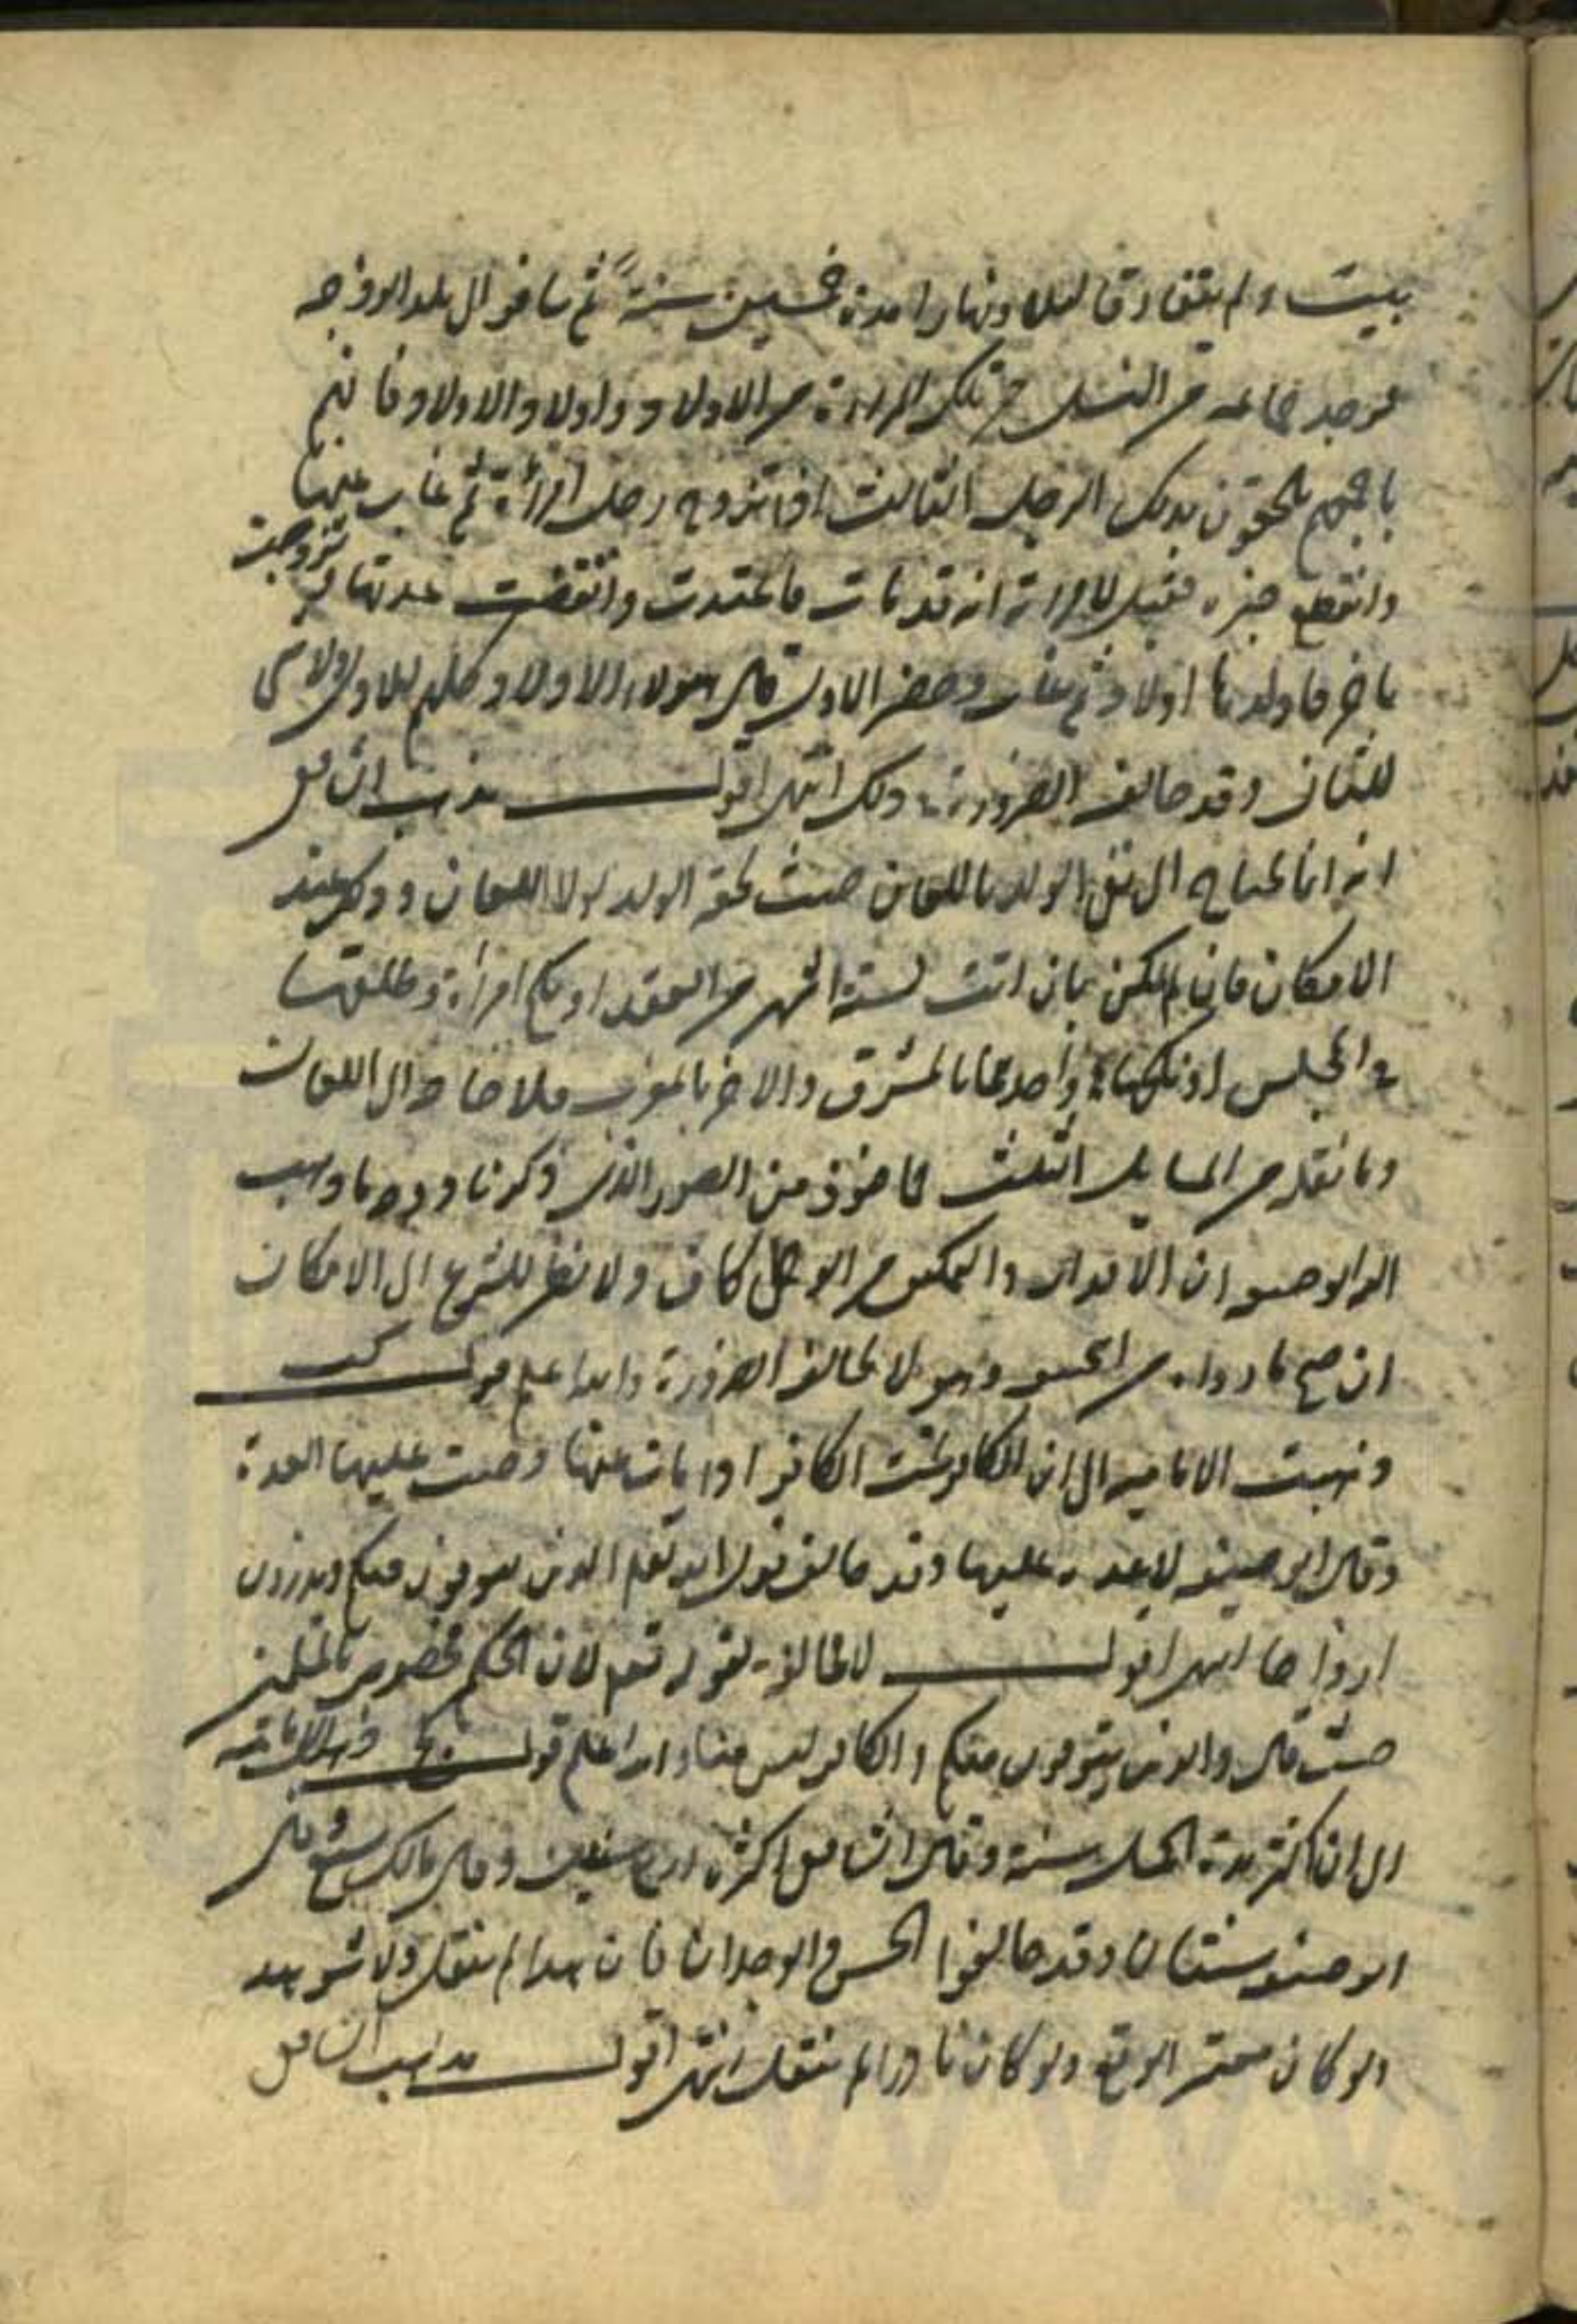 بيت ولم يتفارقا ليلا ونهارا مدة خمسين سنة ثم سافر الى بلد الزوجة
فوجد جماعة من النسل من تلك المراءة من الاولاد واولاد الاولاد فانهم
باجمعهم يلحقون بذلك الرجل الثالث اذا تزوج رجل امرأة ثم غاب عنها
وانقطع خبره فقيل للامراة انه قد مات فاعتدت وانقضت عدتها ثم تزوجت
باخر فاولدها اولادا ثم غاب وحضر الاول قال هولاء الاولاد كلهم للاول ولا شئ
للثاني وقد خالف الضرورة في ذلك انتهى اقول مذهب الشافعي
انه انما يحتاج الى نفي الولد باللعان حيث لحقه الولد لولا اللعان وذلك عند
الامكان فان لم يكن بان اتت لستة اشهر من العقد او نكح امرأة وطلقها
في المجلس او نكحها واحدهما بالمشرق والاخر بالمغرب فلا حاجة الى اللعان
وما نقله من المسايل الثلث مأخوذ من الصور التي ذكرنا ووجه ما ذهب
اليه ابو حنيفه ان الاقدار والتمكين من الوطى كاف ولا نظر للشرع الى الامكان
ان صح ما رواه من الحسن وهو لا يخالف الضرورة والله اعلم قوله كب
ذهبت الامامية الى ان الكافر تحت الكافر اذا مات عنها وجبت عليها العدة
وقال ابو حنيفه لا عدة عليها وقد خالف قول الله تعم الذين يتوفون منكم ويذرون
ازواجا انتهى اقول لا مخالفة لقوله تعم لان الحكم مخصوص بالمسلمين
حيث قال والذين يتوفون منكم والكافر ليس منا والله اعلم قوله كج ذهبت الامامية
الى ان اكثر مدة الحمل سنة وقال الشافعي اكثره اربع سنين وقال مالك سبع وقال
ابو حنيفه سنتان وقد خالفوا الحس والوجدان فان هذا لم ينقل ولا شوهد
ولو كان معتبر الوقع ولو كان نادرا لم ينقل انتهى اقول مذهب الشافعي